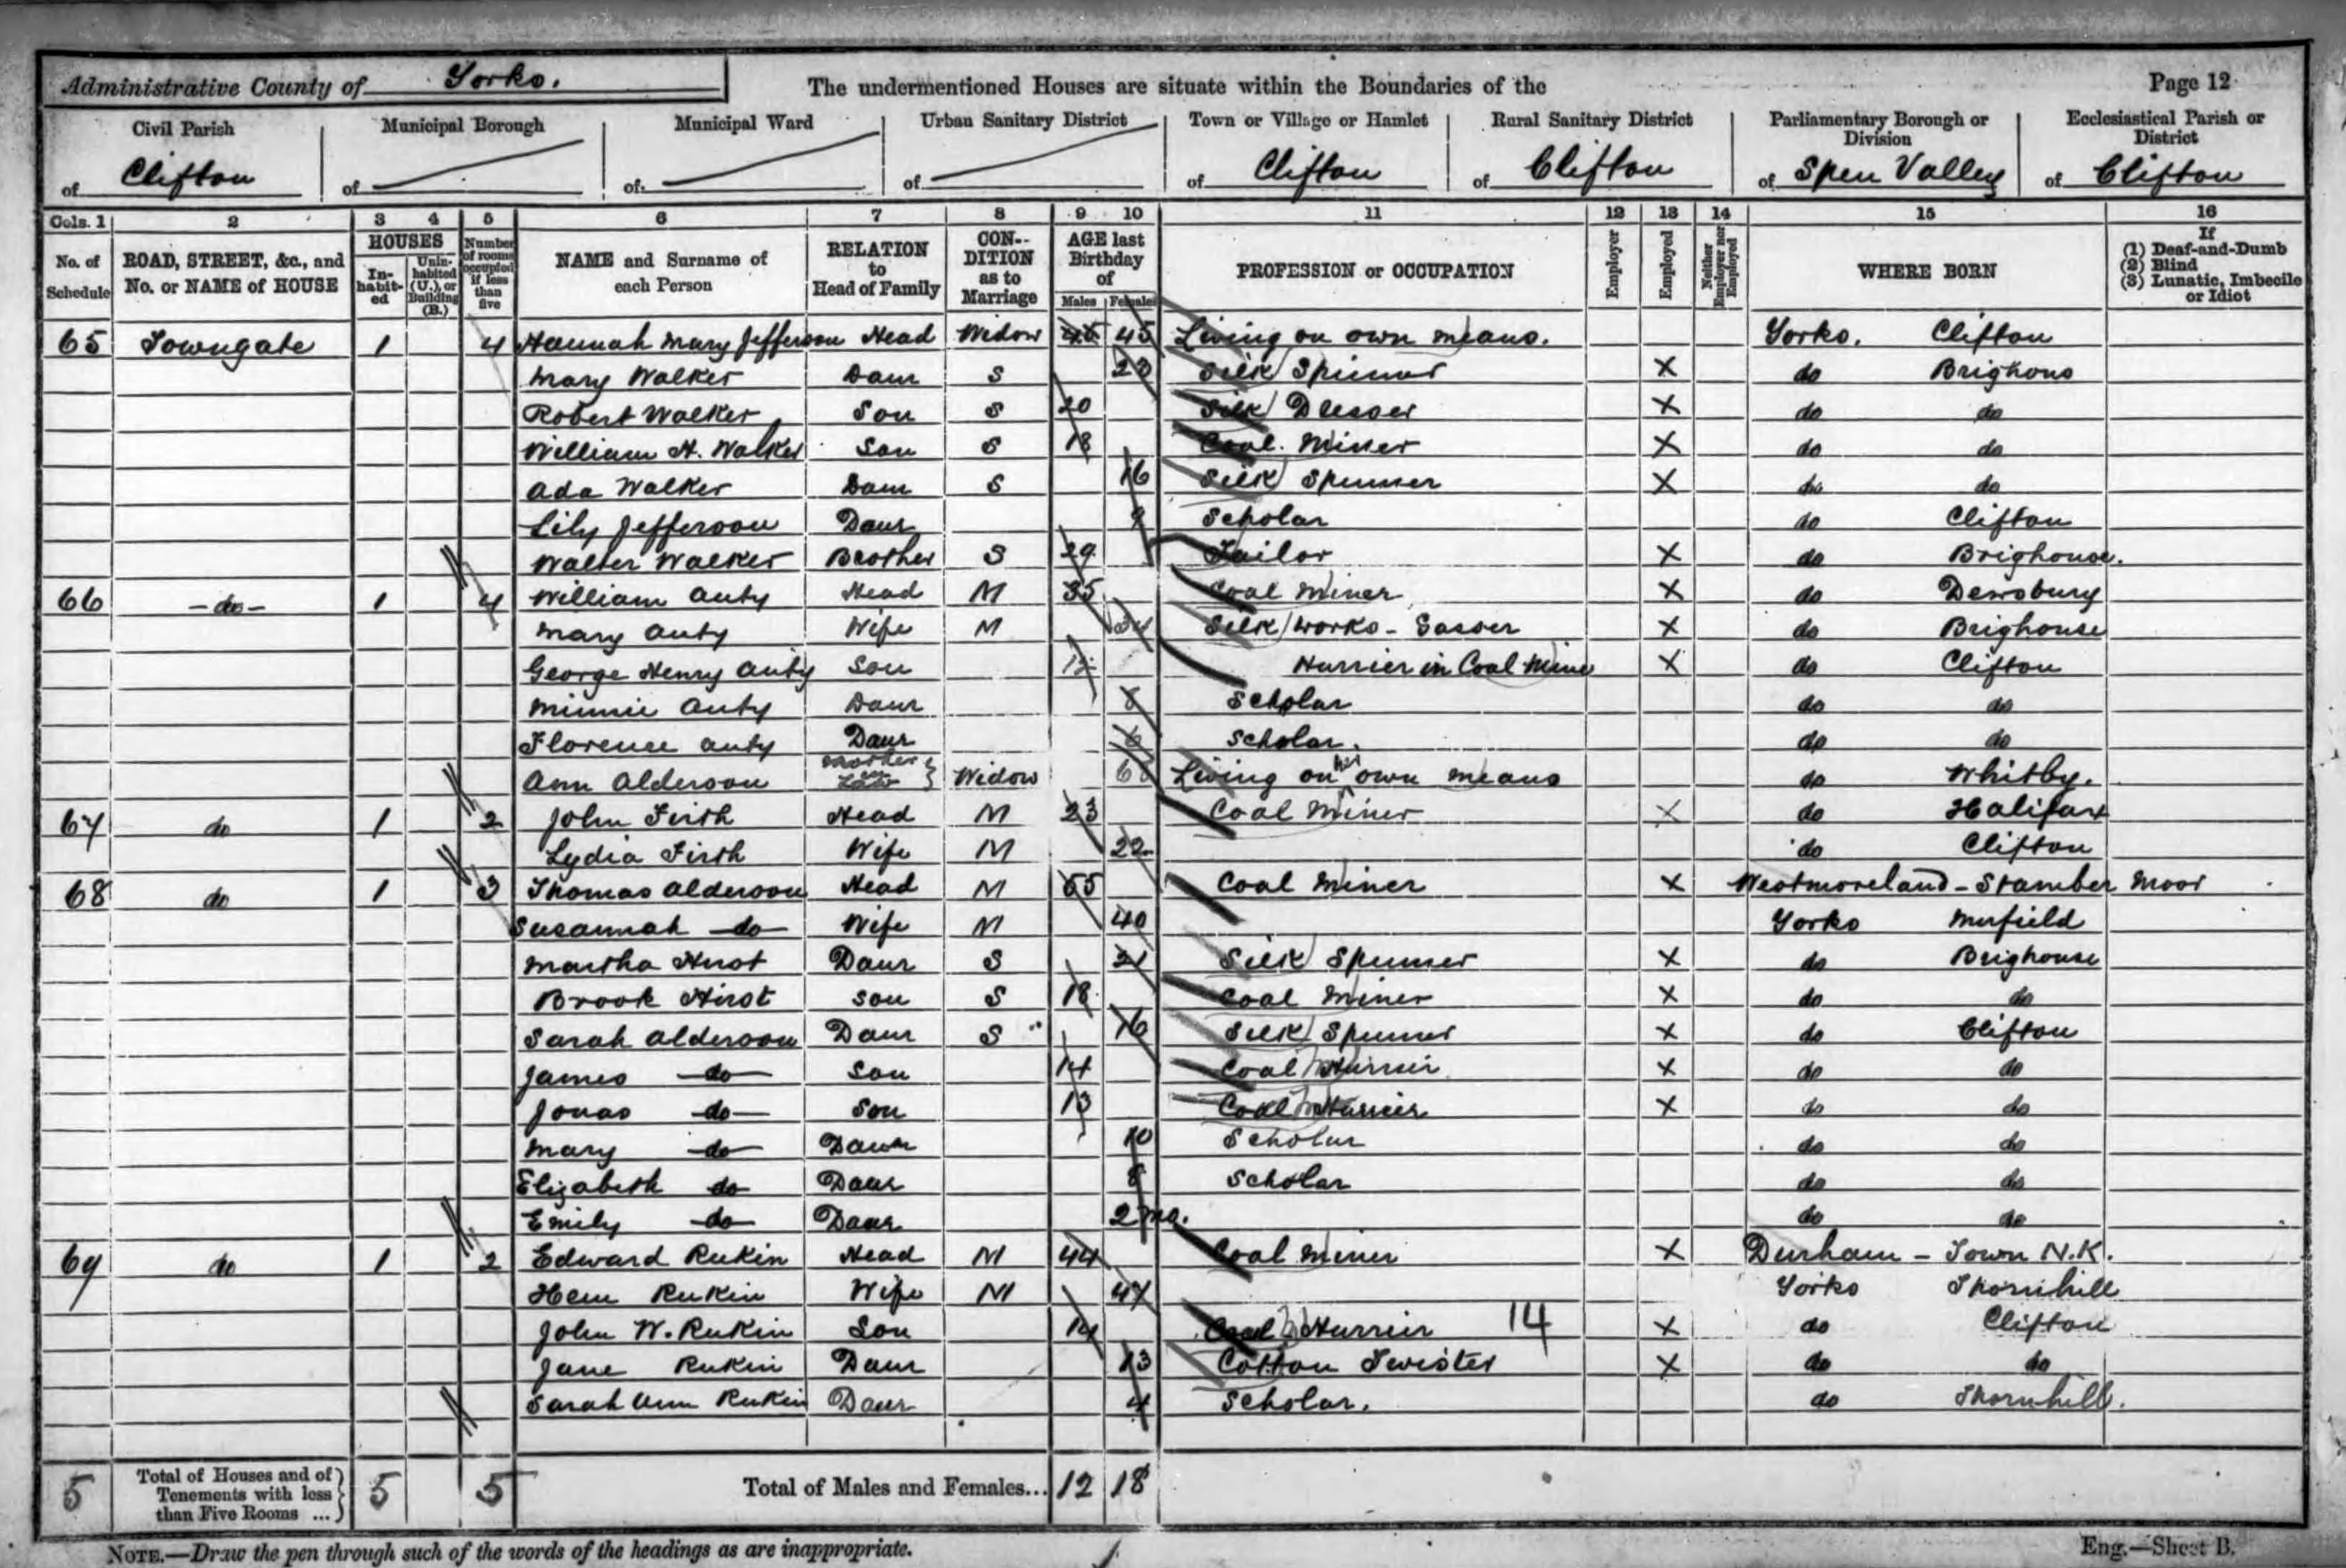 Administrative County of Yorks. The undermentioned Houses are situate within the Boundaries of the Page 12
Civil Parish Municipal Borough Municipal Ward Urban Sanitary District Town or Village or Hamlet Rural Sanitary District Parliamentary Borough or Division Ecclesiastical Parish or District
of Clifton of of of of Clifton of Clifton of Spen Valley of Clifton
Cols. 1 2 3 4 5 6 7 8 9 10 11 12 13 14 15 16
No. of Schedule ROAD, STREET, &c., and No. or NAME of HOUSE HOUSES In-habit-ed Unin-habited (U.), or Building (B.) Number of rooms occupied if less than five NAME and Surname of each Person RELATION to Head of Family CON-DITION as to Marriage AGE last Birthday of Males Females PROFESSION or OCCUPATION Employer Employed Neither Employer nor Employed WHERE BORN If (1) Deaf-and-Dumb (2) Blind (3) Lunatic, Imbecile or Idiot
65 Towngate 1 4 Hannah Mary Jefferson Head Widow 45 45 Living on own means. Yorks. Clifton
Mary Walker Daur S 23 Silk Spinner X do Brighous
Robert Walker Son S 20 Silk Dresser X do do
William H. Walker Son S 18 Coal Miner X do do
Ada Walker Daur S 16 Silk Spinner X do do
Lily Jefferson Daur 9 Scholar do Clifton
Walter Walker Brother S 29 Tailor X do Brighouse.
66 - do - 1 4 William Auty Head M 35 Coal Miner X do Dewsbury
Mary Auty Wife M 34 Silk Works - Gasser X do Brighouse
George Henry Auty Son 12 Hurrier in Coal Mine X do Clifton
Minnie Auty Daur 8 Scholar do do
Florence Auty Daur 6 Scholar. do do
Ann Alderson Mother in Law Widow Living on her own means do Whitby.
67 do 1 2 John Firth Head M 23 Coal Miner X do Halifax
Lydia Firth Wife M 22 do Clifton
68 do 1 3 Thomas Alderson Head M 55 Coal Miner X Westmoreland - Stamber Moor
Susannah do Wife M 40 Yorks Mirfield
Martha Hirst Daur S 21 Silk Spinner X do Brighouse
Brook Hirst Son S 18 Coal Miner X do do
Sarah Alderson Daur S 16 Silk Spinner X do Clifton
James do Son 14 Coal Hurrier X do do
Jonas do Son 13 Coal Hurrier X do do
Mary do Daur 10 Scholar do do
Elizabeth do Daur 8 Scholar do do
Emily do Daur 2 mo. do do
69 do 1 2 Edward Rukin Head M 44 Coal Miner X Durham - Town N.K.
Rukin Wife M 47 Yorks Thornhill
John W. Rukin Son 14 Coal Hurrier 14 X do Clifton
Jane Rukin Daur 13 Cotton Twister X do do
Sarah Ann Rukin Daur 4 Scholar. do Thornhill.
5 Total of Houses and of Tenements with less than Five Rooms ... 5 5 Total of Males and Females... 12 18
NOTE.—Draw the pen through such of the words of the headings as are inappropriate. Eng.—Sheet B.